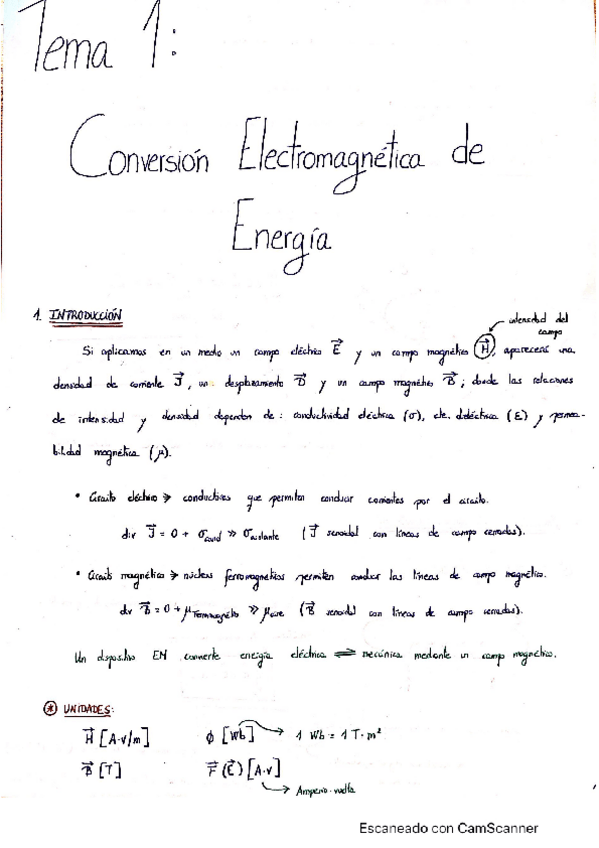 Tema 1:
Conversión Electromagnética de
Energía
1. INTRODUCCIÓN
intensidad del
campo
Si aplicamos en un medio un campo eléctrico E⃗ y un campo magnético H⃗, aparecerá una
densidad de corriente J⃗, un desplazamiento D⃗ y un campo magnético B⃗; donde las relaciones
de intensidad y densidad dependen de: conductividad eléctrica (σ), cte. dieléctrica (ε) y permea-
bilidad magnética (μ).
• Circuito eléctrico → conductores que permiten conducir corrientes por el circuito.
div J⃗ = 0 + σcond >> σaislante (J⃗ senoidal con líneas de campo cerradas).
• Circuito magnético → núcleos ferromagnéticos permiten conducir las líneas de campo magnético.
div B⃗ = 0 + μFerromagnético >> μaire (B⃗ senoidal con líneas de campo cerradas).
Un dispositivo EM convierte energía eléctrica ⇌ mecánica mediante un campo magnético.
* UNIDADES:
H⃗ [A·v/m] φ [Wb] → 1 Wb = 1 T·m²
B⃗ [T] F⃗ (E⃗) [A·v]
→ Amperio-vuelta
Escaneado con CamScanner